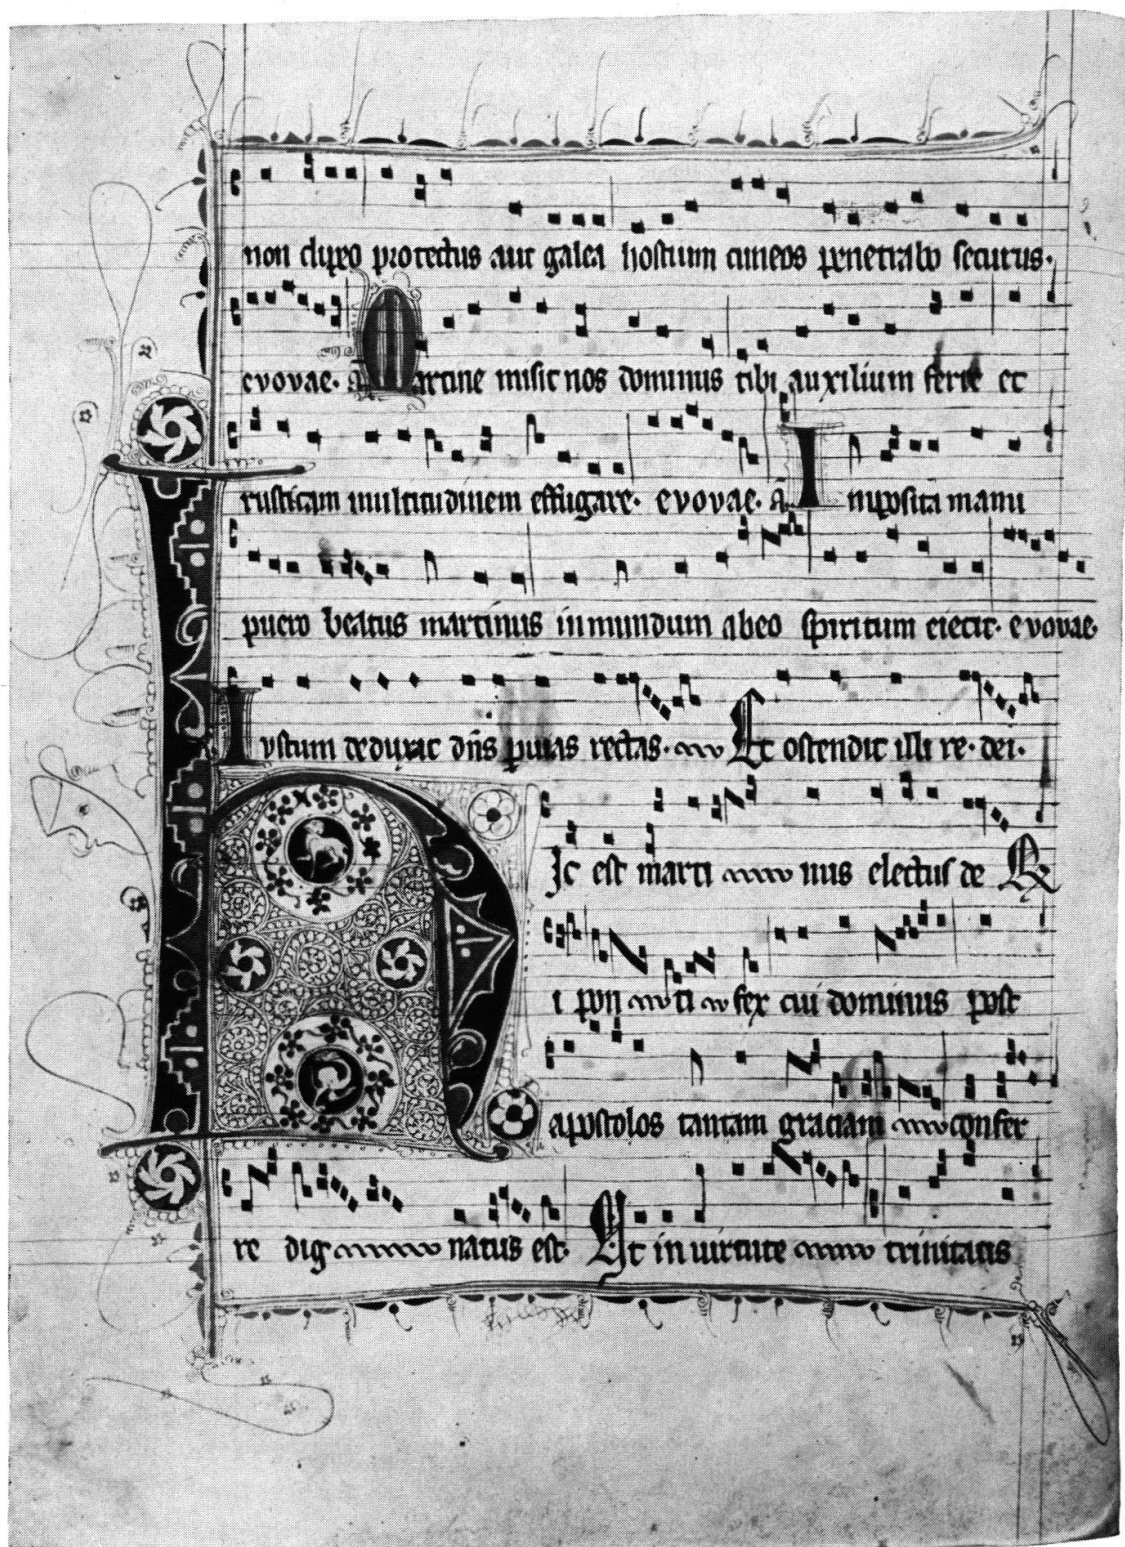 non clypeo protectus aut galea hostium cuneos penetrabo securus.
evovae. a Martine misit nos dominus tibi auxilium ferre et
rusticam multitudinem effugare. evovae. a Inposita manu
puero beatus martinus inmundum abeo spiritum eiecit. evovae.
Iustum deduxit dns p uias rectas. Et ostendit illi re. dei.
Hic est marti nus electus de R
i pon ti fex cui dominus post
apostolos tantam graciam confer
re dig natus est. Et in uirtute trinitatis